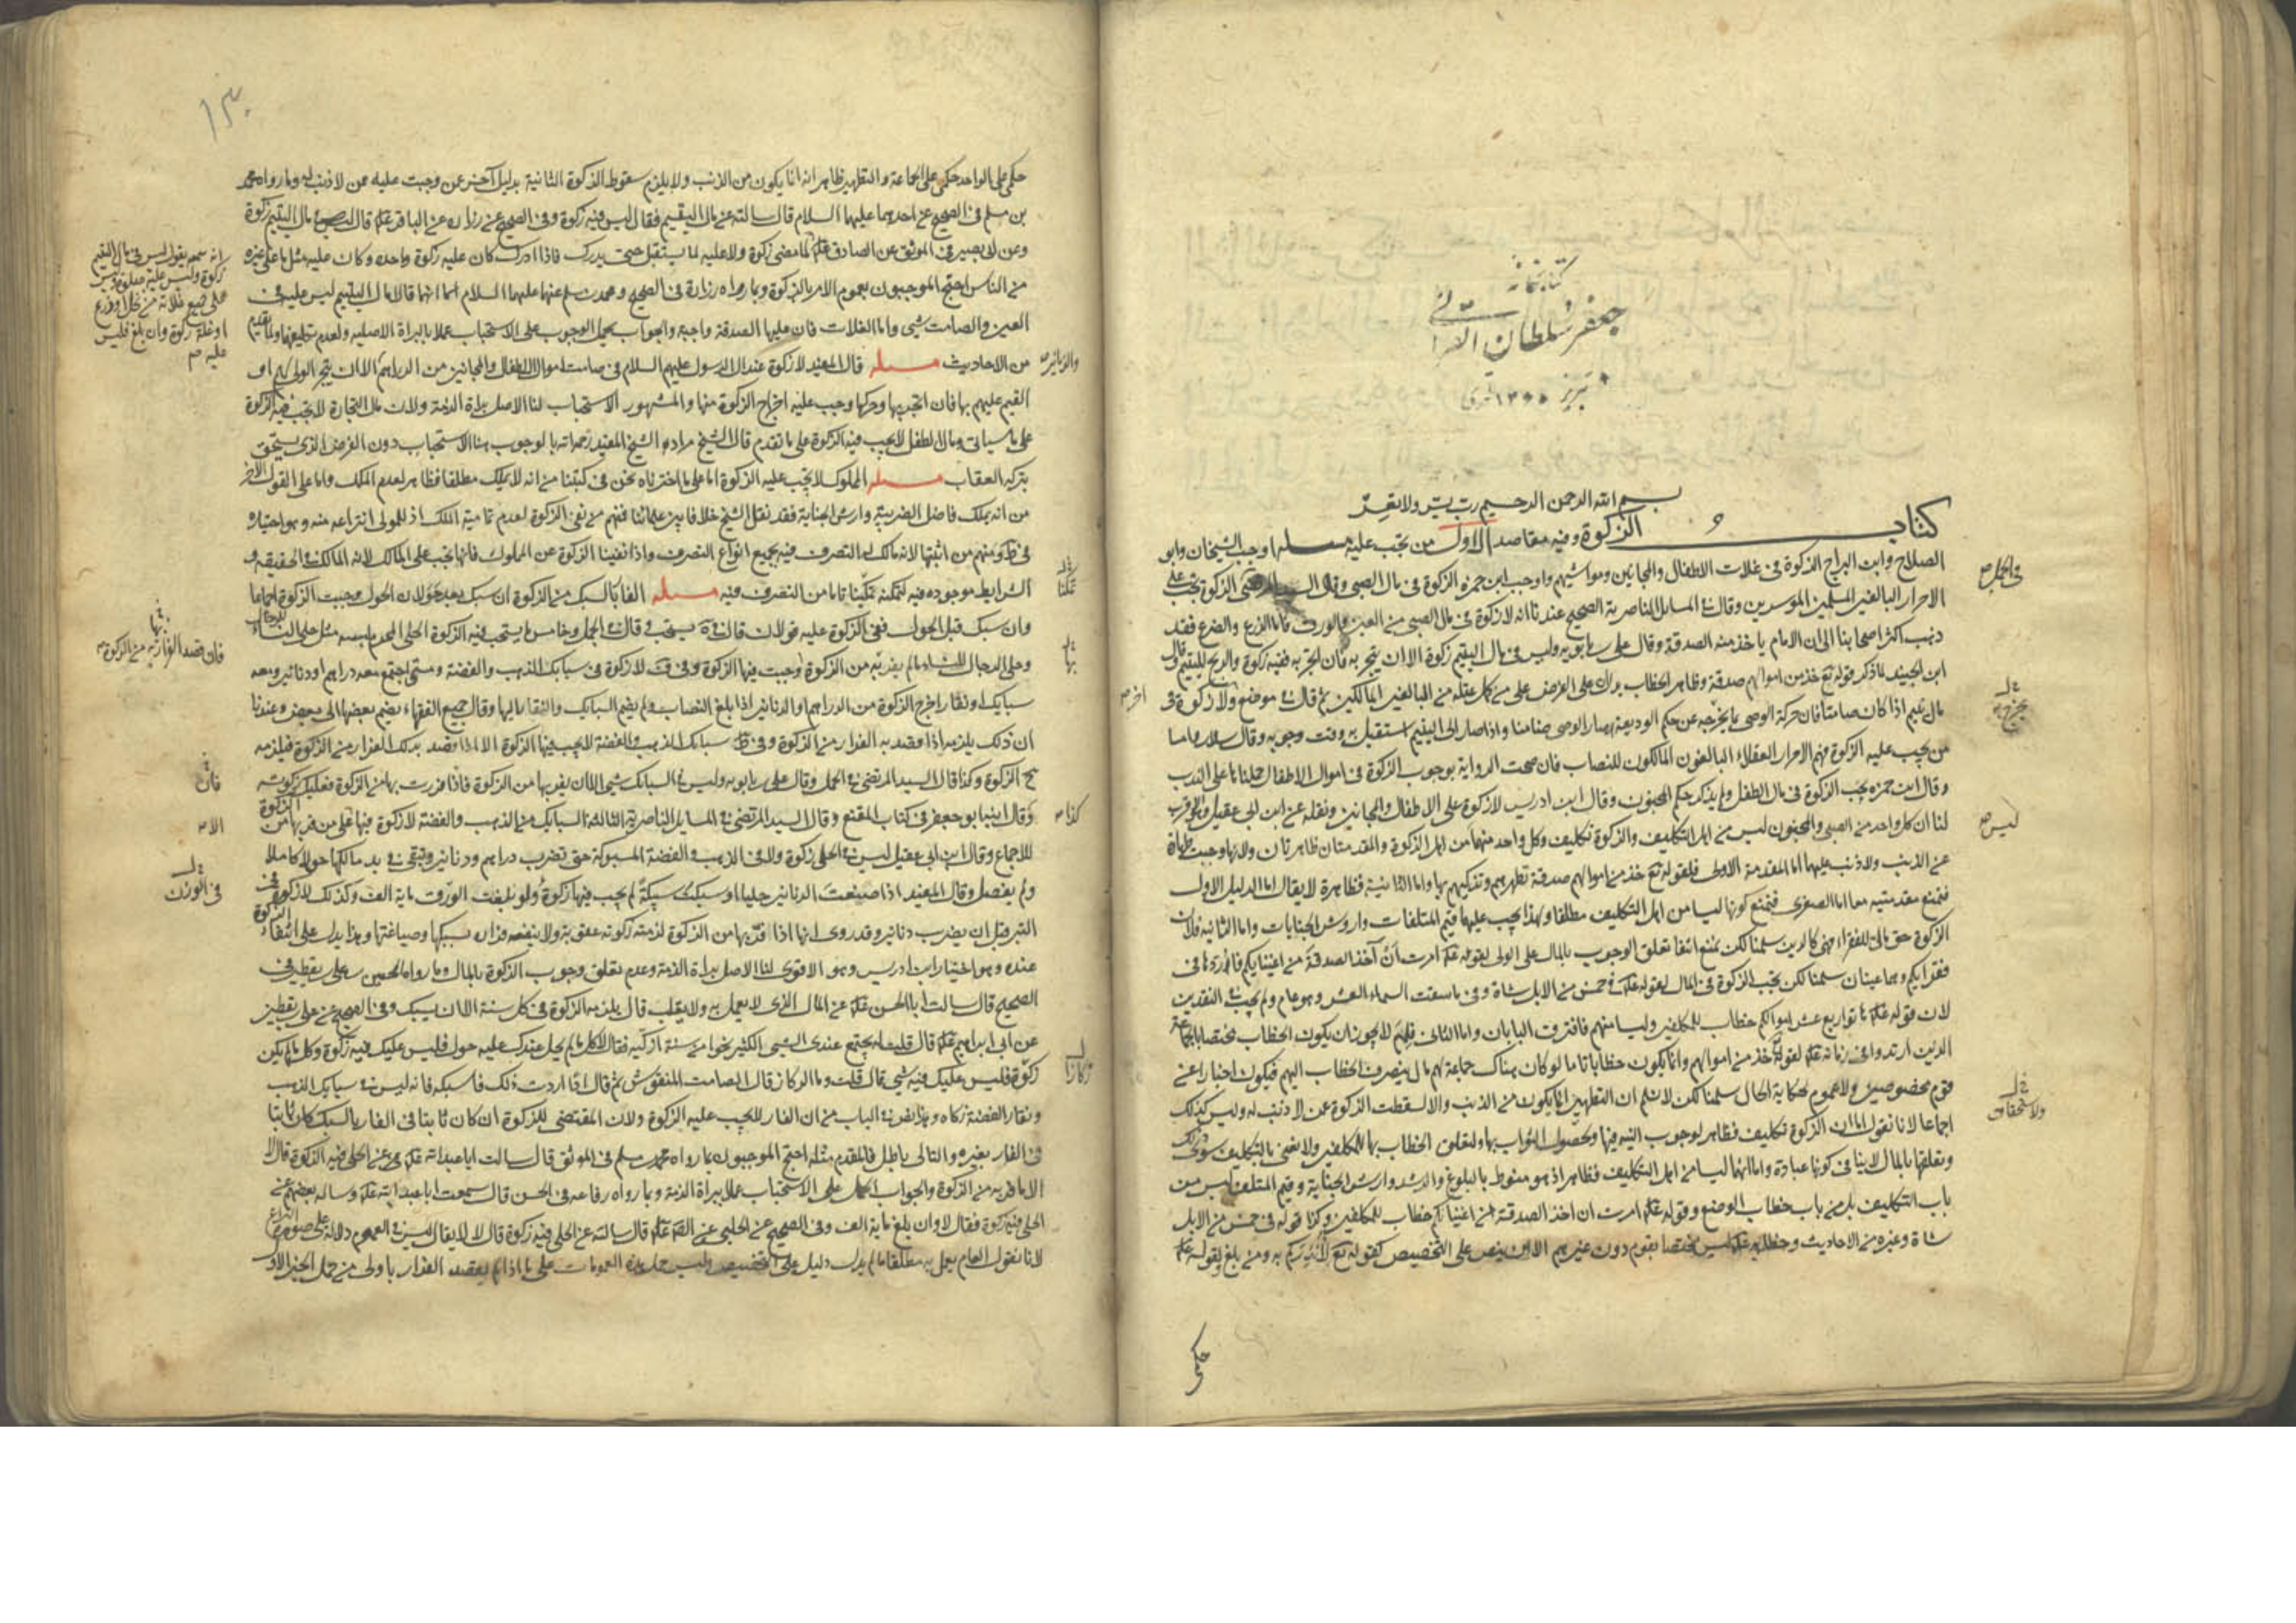 كتابخانه
جعفر سلطان القرائی
تبریز ۱۳
بسم الله الرحمن الرحيم رب يسر ولا تعسر
كتاب الزكوة وفيه مقاصد الاول من تجب عليه مسله اوجب الشيخان وابو
الصلاح وابن البراج الزكوة فى غلات الاطفال والمجانين ومواشيهم واوجب ابن حمزه الزكوة فى مال الصبى وقال السيد المرتضى الزكوة تجب على
الاحرار البالغين المسلمين الموسرين وقال فى المسايل الناصرية الصحيح عندنا انه لا زكوة فى مال الصبى من العين والورق فاما الزرع والضرع فقد
ذهب اكثر اصحابنا الى ان الامام ياخذ منه الصدقة وقال على بن بابويه وليس فى مال اليتيم زكوة الا ان يتجر به فان اتجر به ففيه زكوة والربح لليتيم وقال
ابن الجنيد ما ذكر قوله تع خذ من اموالهم صدقة وظاهر الخطاب يدل على الفرض على من كمل عقله من البالغين المالكين ثم قال فى موضع ولا زكوة فى
مال يتيم اذا كان صامتا فان حركه الوصى بما يخرجه عن حكم الوديعة صار الوصى ضامنا واذا صار الى اليتيم استقبل به وقت وجوبه وقال سلار واما
من يجب عليه الزكوة فهم الاحرار العقلاء البالغون المالكون للنصاب فان صحت الرواية بوجوب الزكوة فى اموال الاطفال حملناها على الندب
وقال ابن حمزه يجب الزكوة فى مال الطفل ولم يذكر حكم المجنون وقال ابن ادريس لا زكوة على الاطفال والمجانين ونقله عن ابن ابى عقيل وهو الاقرب
لنا ان كل واحد من الصبى والمجنون ليس من اهل التكليف والزكوة تكليف وكل واحد منهما من اهل الزكوة والمقدمتان ظاهرتان ولانها وجبت طهارة
عن الذنب ولا ذنب عليهما اما المقدمة الاولى فلقوله تع خذ من اموالهم صدقة تطهرهم وتزكيهم بها واما الثانية فظاهرة لا يقال اما الدليل الاول
فتمنع مقدمتيه معا اما الصغرى فتمنع كونهما ليسا من اهل التكليف مطلقا ولهذا يجب عليهما قيم المتلفات واروش الجنايات واما الثانيه فلان
الزكوة حق مالى للفقراء فهى كالدين سلمنا لكن نمنع انتفا تعلق الوجوب بالمال على الولى لقوله عم امرت ان آخذ الصدقة من اغنيايكم فاردها فى
فقرايكم وهما عينان سلمنا لكن تجب الزكوة فى المال لقوله عم فى خمس من الابل شاة وفى ما سقت السماء العشر وهو عام ولم يجب فى النقدين
لان قوله عم هاتوا ربع عشر اموالكم خطاب للمكلفين وليسا منهم فافترق البابان واما الثانى فلم لا يجوز ان يكون الخطاب مختصا بالجماعة
الذين ارتدوا فى زمانه عم لقوله خذ من اموالهم وانما يكون خطابا تاما لو كان هناك جماعة لهم مال ينصرف الخطاب اليهم فيكون اخبارا عن
قوم مخصوصين ولا عموم لحكاية الحال سلمنا لكن لا نسلم ان التطهير انما يكون من الذنب والا لسقطت الزكوة عن من لا ذنب له وليس كذلك
اجماعا لانا نقول اما ان الزكوة تكليف فظاهر لوجوب النيه فيها ولحصول الثواب بها ولتعلق الخطاب بها للمكلفين ولا نعنى بالتكليف سوى ذلك
وتعلقها بالمال لا ينافى كونها عبادة واما انهما ليسا من اهل التكليف فظاهر اذ هو منوط بالبلوغ والرشد وارش الجناية وقيم المتلف ليس من
باب التكليف بل من باب خطاب الوضع وقوله عم امرت ان اخذ الصدقة من اغنيائكم خطاب للمكلفين وكذا قوله فى خمس من الابل
شاة وغيره من الاحاديث وخطابه عم ليس مختصا بقوم دون غيرهم الا ان ينص على التخصيص كقوله تع لانذركم به ومن بلغ ولقوله عم
حكمى
والحلى
يخرج
اخر
ليس
ولاستحقاق
۱۳۰
حكمى على الواحد حكمى على الجماعة والتطهير ظاهر انه انما يكون من الذنب ولا يلزم سقوط الزكوة الثانية بدليل آخر عن وجبت عليه ممن لا ذنب له وما رواه محمد
بن مسلم فى الصحيح عن احدهما عليهما السلام قال سالته عن مال اليتيم فقال ليس فيه زكوة وفى الصحيح عن زراره عن الباقر عم قال ليس فى مال اليتيم زكوة
وعن ابى بصير فى الموثق عن الصادق عم لما مضى زكوة ولا عليه لما يستقبل حتى يدرك فاذا ادرك كان عليه زكوة واحده وكان عليه مثل ما على غيره
من الناس احتج الموجبون بعموم الامر بالزكوة وبما رواه زرارة فى الصحيح ومحمد بن مسلم عنهما عليهما السلام انهما قالا مال اليتيم ليس عليه فى
العين والصامت شى واما الغلات فان عليها الصدقة واجبة والجواب بحمل الوجوب على الاستحباب عملا بالبراة الاصليه ولعدم تكليفهما ولما تقدم
من الاحاديث مسله قال المفيد لا زكوة عند ال الرسول عليهم السلام فى صامت اموال الاطفال والمجانين من الدراهم الا ان يتجر الولى لهم او
القيم عليهم بها فان اتجر بها وحركها وجب عليه اخراج الزكوة منها والمشهور الاستحباب لنا الاصل براة الذمة ولان مال التجارة لا يجب فيه الزكوة
على ما سياتى ومال الطفل لا يجب فيه الزكوة على ما تقدم قال الشيخ مراده الشيخ المفيد رحمه الله بالوجوب هنا الاستحباب دون الفرض الذى يستحق
بتركه العقاب مسله المملوك لا يجب عليه الزكوة اما على ما اخترناه نحن فى كتبنا من انه لا يملك مطلقا فظاهر لعدم الملك واما على القول الاخر
من انه يملك فاضل الضريبة وارش الجناية فقد نقل الشيخ خلافا بين علمائنا فمنهم من نفى الزكوة لعدم تمامية الملك اذ للمولى انتزاعه منه وهو اختياره
فى ط ومنهم من اثبتها لانه مالك له التصرف فيه بجميع انواع التصرف واذا نفينا الزكوة عن المملوك فانها تجب على المالك لانه المالك فى الحقيقة و
الشرايط موجوده فيه لتمكنه تمكينا تاما من التصرف فيه مسله الفار بالسبك من الزكوة ان سبك بعد حؤولان الحول وجبت الزكوة اجماعا
وان سبك قبل الحول ففى الزكوة عليه قولان قال فى يه يستحب وقال فى الجمل وخامس ما يستحب فيه الزكوة الحلى المحرم لبسه مثل حلى النساء للرجال
وحلى الرجال للنساء ما لم يفر به من الزكوة وجبت فيها الزكوة وفى ف لا زكوة فى سبايك الذهب والفضة ومتى اجتمع معه دراهم او دنانير ومعه
سبايك او نقار اخرج الزكوة من الدراهم والدنانير اذا بلغ النصاب ولم يضم السبايك والنقار اليها وقال جميع الفقهاء يضم بعضها الى بعض وعندنا
ان ذلك يلزمه اذا قصد به الفرار من الزكوة وفى ط سبايك الذهب والفضة لا يجب فيها الزكوة الا اذا قصد بذلك الفرار من الزكوة فيلزمه
ح الزكوة وكذا قال السيد المرتضى فى الجمل وقال على بن بابويه وليس فى السبايك شى الا ان يفر بها من الزكوة فاذا فررت بها من الزكوة فعليك زكوته
وقال ابنه ابو جعفر فى كتاب المقنع وقال السيد المرتضى فى المسايل الناصرية الثالثة السبايك من الذهب والفضة لا زكوة فيها على من فر بها من الزكوة
للاجماع وقال ابن ابى عقيل ليس فى الحلى زكوة ولا فى الذهب والفضة المسبوكة حتى تضرب دراهم ودنانير وتبقى فى يد مالكها حولا كاملا
ولم يفصل وقال المفيد اذا صيغت الدنانير حليا او سبكت سبيكة لم يجب فيها زكوة ولو بلغت الورق ماية الف وكذلك لا زكوة فى
التبر قبل ان يضرب دنانير وقد روى انها اذا فر بها من الزكوة لزمته زكوته عقوبة ولا ينفعه فراره بسبكها وصياغتها وهذا يدل على انتفاء الزكوة
عنده وهو اختيار ابن ادريس وهو الاقوى لنا الاصل براة الذمة وعدم تعلق وجوب الزكوة بالمال وما رواه الحسين بن على بن يقطين فى
الصحيح قال سالت ابا الحسن عم عن المال الذى لا يعمل به ولا يقلب قال يلزمه الزكوة فى كل سنة الا ان يسبك وفى الصحيح عن على بن يقطين
عن ابى ابراهيم عم قال قلت له يجتمع عندى الشى الكثير نحوا من سنة ازكيه فقال لا كل ما لم يحل عندك عليه حول فليس عليك فيه زكوة وكل ما لم يكن
ركازا فليس عليك فيه شى قال قلت وما الركاز قال الصامت المنقوش ثم قال اذا اردت ذلك فاسبكه فانه ليس فى سبايك الذهب
ونقار الفضة زكاه وهذا نص فى الباب من ان الفار لا يجب عليه الزكوة ولان المقتضى للزكوة ان كان ثابتا فى الفار بالسبك كان ثابتا
فى الفار بغيره والتالى باطل فالمقدم مثله احتج الموجبون بما رواه محمد بن مسلم فى الموثق قال سالت ابا عبد الله عم عن الحلى فيه الزكوة قال لا
الا ما فر به من الزكوة والجواب الحمل على الاستحباب عملا ببراة الذمة وبما رواه رفاعه فى الحسن قال سمعت ابا عبد الله عم وساله بعضهم عن
الحلى فيه زكوة فقال لا وان بلغ ماية الف وفى الصحيح عن الحلبى عن الصادق عم قال سالته عن الحلى فيه زكوة قال لا لا يقال ليس فى العموم دلالة على صورة النزاع
لانا نقول العام يعمل به مطلقا ما لم يدل دليل على التخصيص وليس حمل هذه العمومات على ما اذا لم يقصد الفرار باولى من حمل الخبر الاول
انه سمعه يقول ليس فى مال اليتيم
زكوة وليس عليه صلوة وليس
على جميع غلاته من نخل او زرع
او غلة زكوة وان بلغ فليس
عليه
والدنانير
تمكنا
بها
فان قصد الفرار به من الزكوة
فان
الا
كذا
فى الورق
ركازا